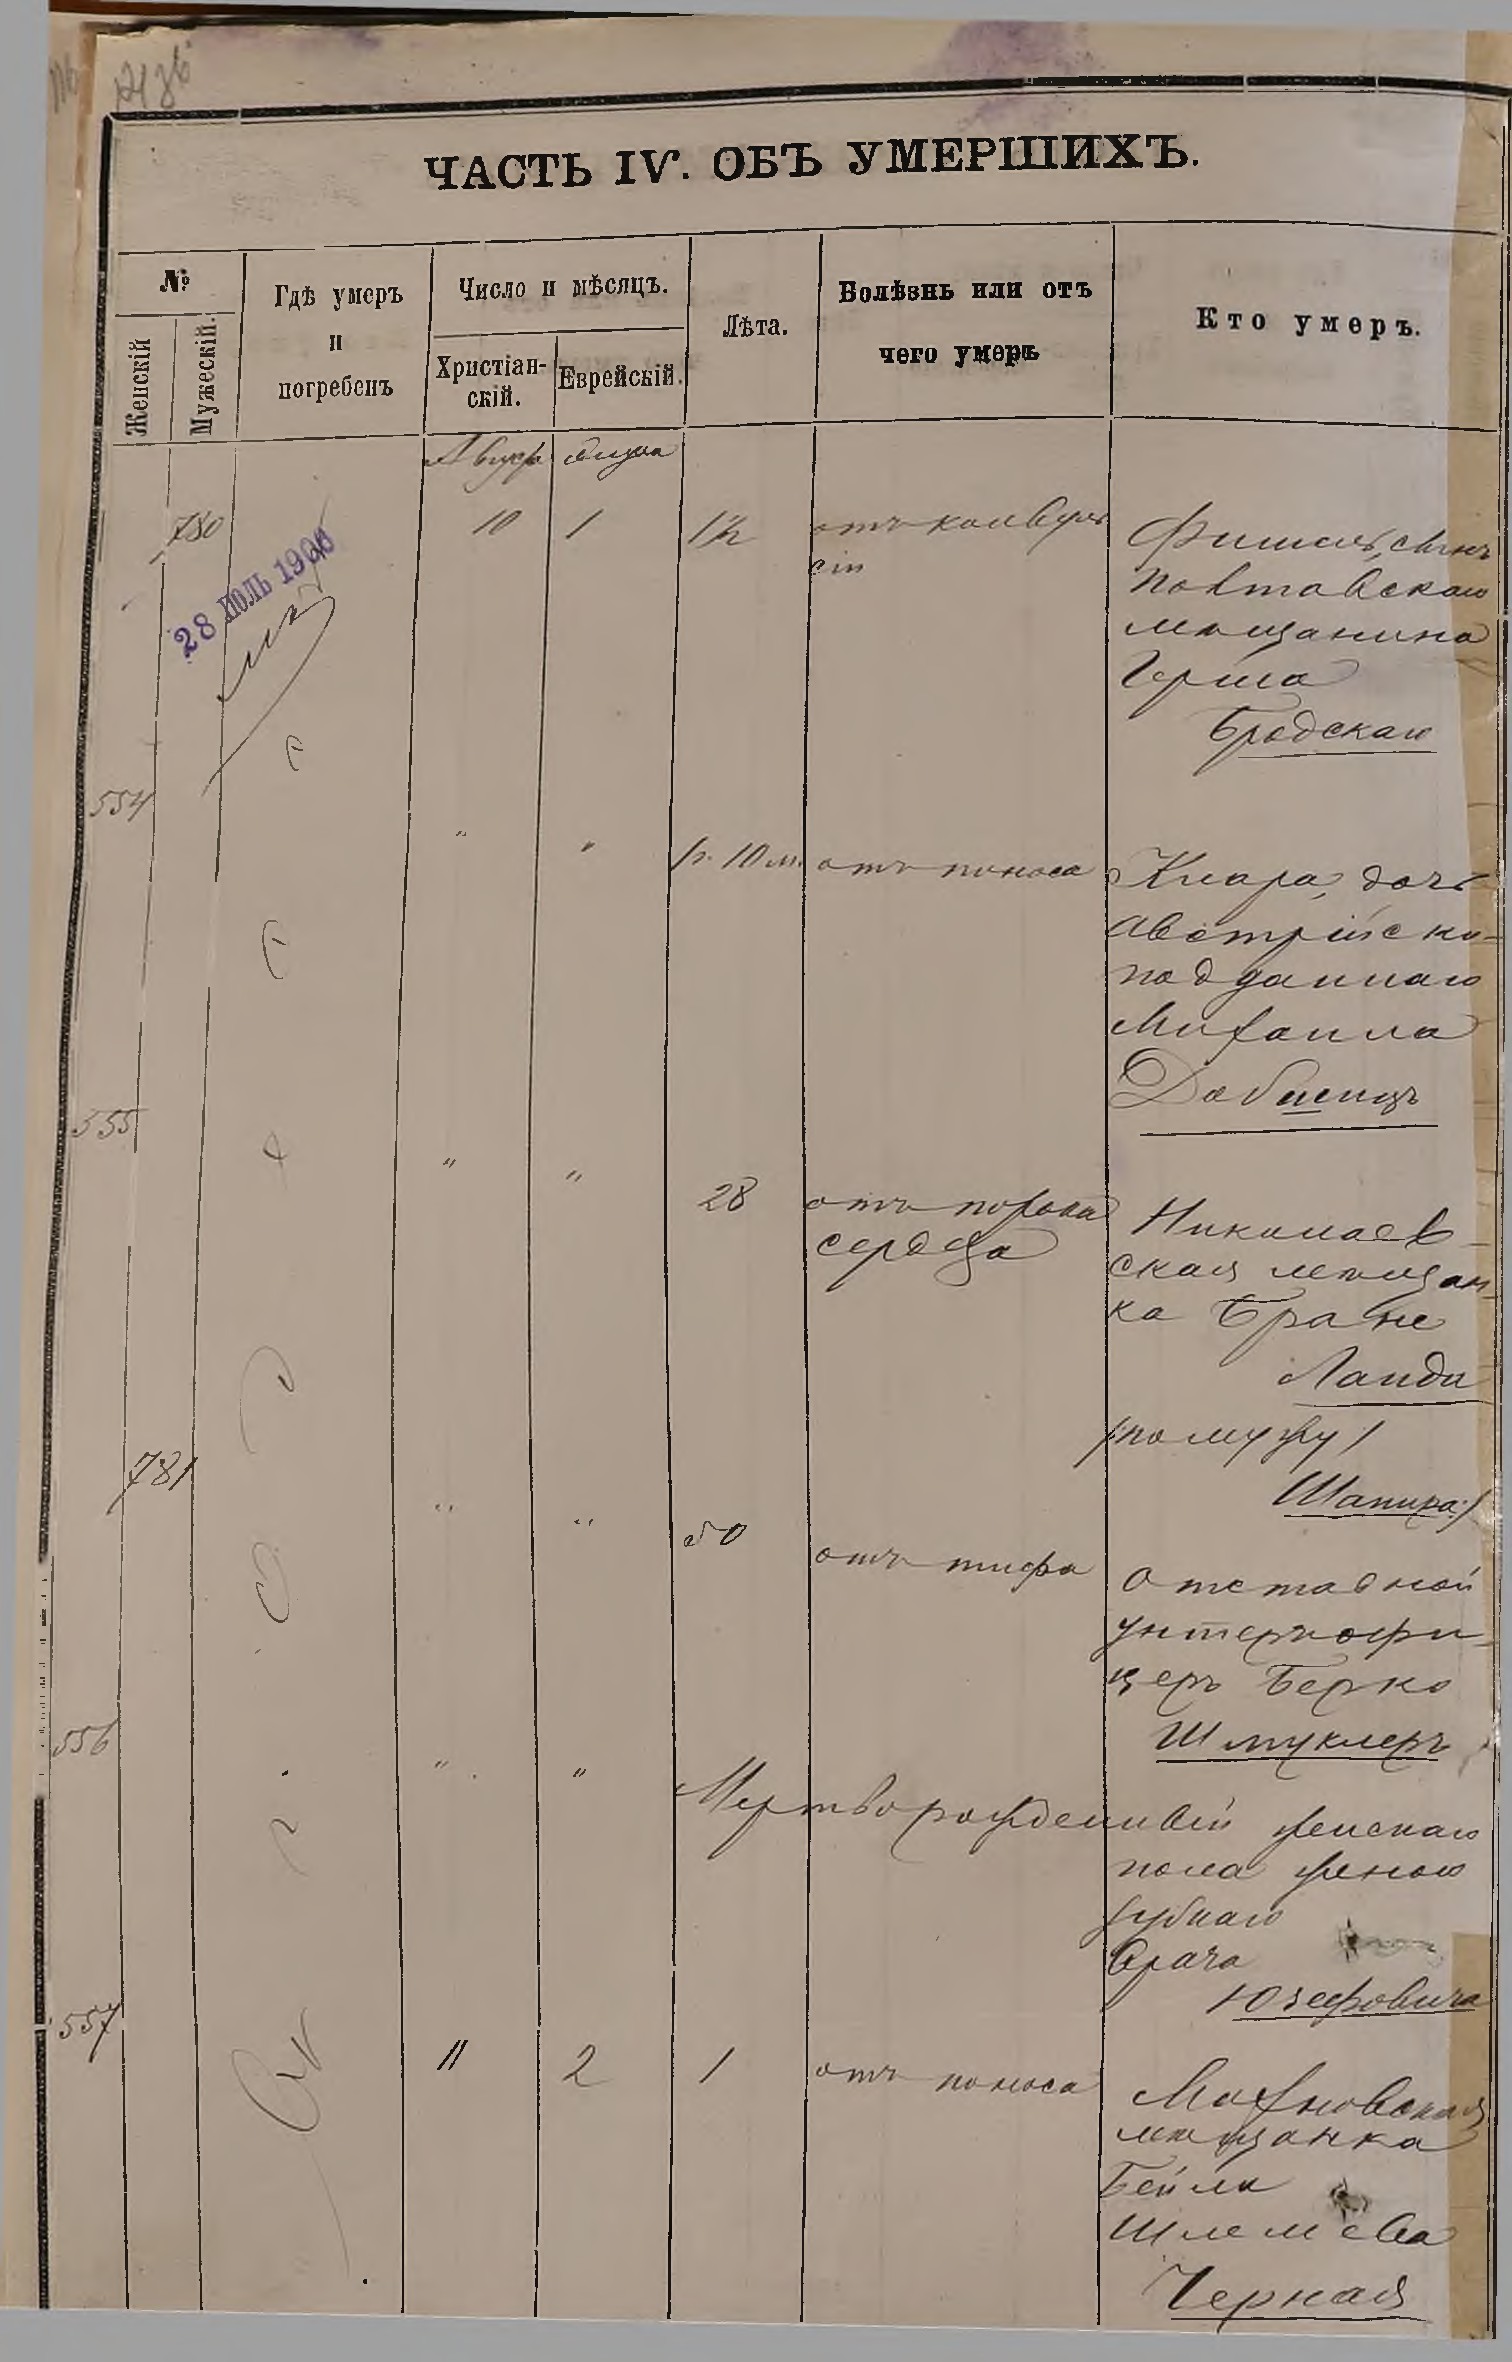 ЧАСТЬ IV. ОБЪ УМЕРШИХЪ.
№
Женскій
Мужескій.
Гдѣ умеръ
и
погребенъ
Число и мѣсяцъ.
Христіан-
скій.
Еврейскій.
Лѣта.
Болѣзнь или отъ
чего умеръ
Кто умеръ.
Август
780
28 ІЮЛЬ 1900
10
1
1½
отъ конвуль
сіи
Фишель, сынъ
полтавскаго
мѣщанина
Герша
Бродскаго
554
"
"
1 г. 10 м.
отъ поноса
Клара, дочь
австрійско-
подданнаго
Михаила
555
"
"
28
отъ порока
сердца
Николаев-
ская мѣщан-
ка Бране
Ланда
/по мужу/
Шапиро/
781
"
"
50
отъ тифа
Отставной
унтеръ-офи-
церъ Берко
Шмуклеръ
556
"
"
Мертворожденный женскаго
пола женою
зубнаго
врача
Юзефовича
557
11
2
1
отъ поноса
Махновская
мѣщанка
Бейла
Шлемова
Черная